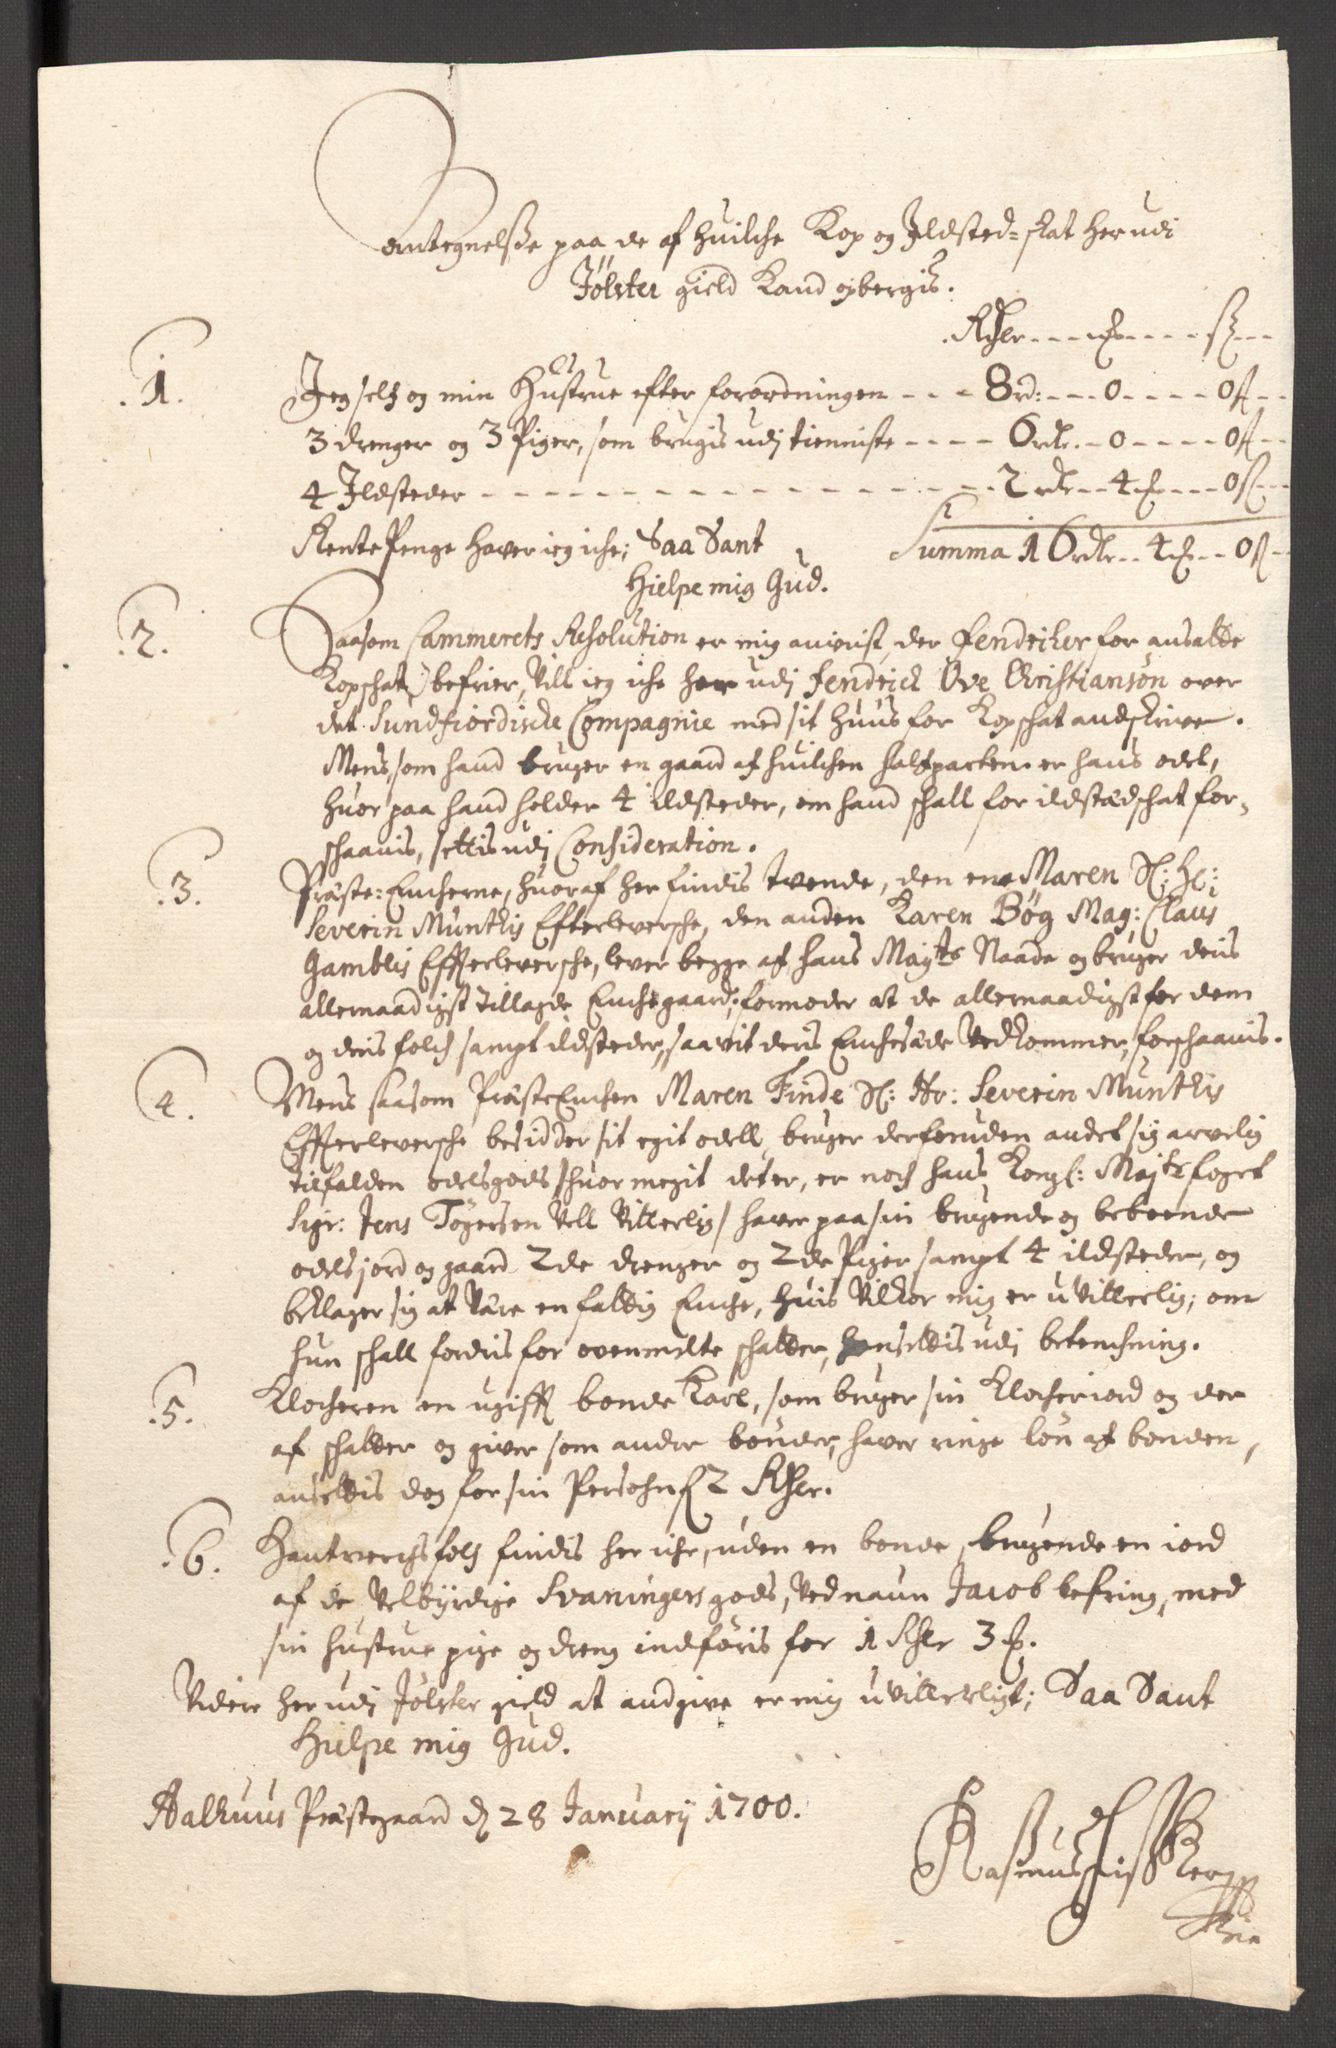 Antegnelsse paa de af huilche Kop og Ildsted-skat her udi
Jölster gield Kand opbergis.
Rdlr---m̶k----sz---
.1. Jeg selff og min Hustrue efter forordningen --- 8rd:---0----0ß--
3 drenger og 3 Piger, som brugis udj tienniste ---- 6rdr.--0----0ß--
4 Ildsteder ---------------- 2 rdr--4mk---0ß---
Rente Penge haver ieg iche; Saa Sant Summa 16rdlr--4mk--0ß-
Hielpe mig Gud.
.2. Saasom Cammerets Resolution er mig anvist, der Fendriker for ansatte
Kopschat befrier, Vill ieg iche her udj Fendrich Ove Christiansön over
det Sundfiordische Compagnie med sit huus for Kopschat andskrive.
Mens, som hand bruger en gaard af huilchen halfparten er hans odel,
huor paa hand holder 4 ildsteder, om hand schall for ildstedschat for-
schaanis, settis udj Consideration.
.3. Präste-Encherne, huoraf her findis tvende, den ene Maren Sl: Hr:
Severin Munthis Efterleversche, den anden Karen Bög Mag: Claus
Gamblis Effterleversche, lever begge af hans Mayts Naade og bruger deris
allernaadigst tillagde Enchsgaard; formoder at de allernaadigst for dem
og deris folch sampt ildsteder, saavit deris Enchesäde Vedkommer, forschaanis.
4. Mens saasom Präste Enchen Maren Finde Sl: Hr: Severin Munthis
Effterleversche besidder sit eget odell, bruger derforuden andet sig arvelig
tilfalden odelsgods /huor megit det er, er noch hans Kongl: Mayts foget
Sigr: Jens Tögersen Vell Vitterlig/ haver paa sin brugende og beboende
odelsjord og gaard 2de drenger og 2de Piger sampt 4 ildsteder, og
bellager sig at Väre en fattig Enche, huis Vilkor mig er uVitterlig; om
hun schall fordris for ovenmelte schatter, hensettis udj betenchning.
.5. Klocheren en ugifft bonde Karl, som bruger sin Klocheriord og der
af schatter og giver som andre bönder, haver ringe lön af bonden,
ansettis dog for sin Persohn 2 Rdlr.
.6. Handtverchsfolch findis her iche, uden en bonde, brugende en iord
af de Velbyrdige Svaningers gods, Ved naun Jacob befring, med
sin hustrue pige og dreng indföris for 1 Rdlr 3 mk.
Videre her udj Jölster gield at andgive er mig uVitterligt; Saa Sant
Hielpe mig Gud.
Aalhuus Prästegaard d 28 January 1700.
Rasmus